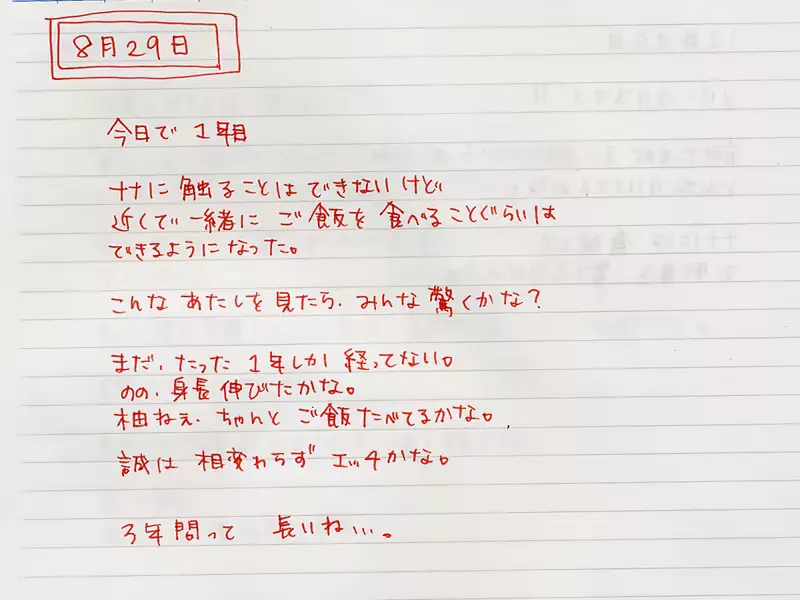 8月29日
今日で 1年目
ナナに 触ることは できないけど
近くで 一緒に ご飯を 食べることぐらいは
できるように なった。
こんな あたしを 見たら、みんな 驚くかな?
まだ、たった 1年しか 経ってない。
のの、身長 伸びたかな。
柚ねぇ、ちゃんと ご飯たべてるかな。
誠は 相変わらず エッチかな。
3年間って 長いね…。